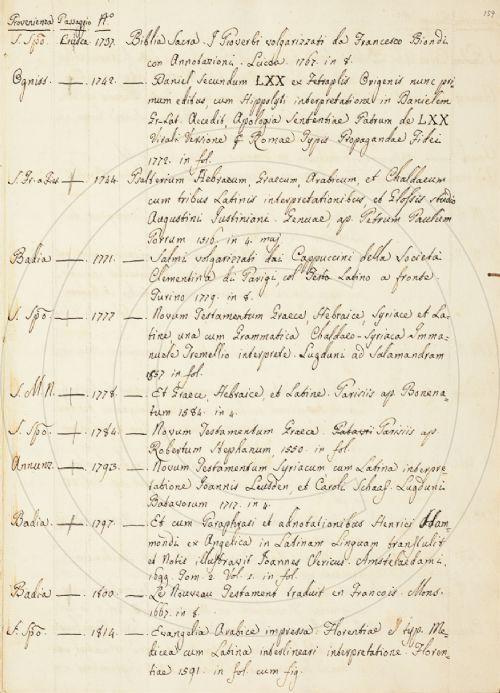 159
Provenienza Passaggio N.º
S. Spo. Crusca 1737. Biblia Sacra. I Proverbi volgarizzati da Francesco Biondi
con Annotazioni. Lucca 1767. in 8.
Ogniss. — 1742. — Daniel Secundum LXX ex Tetraplis Origenis nunc pri
mum editus, cum Hippolyti interpretatione in Danielem
Gr-Lat. Accedit, Apologia Sententiae Patrum de LXX
Virali Versione & Romae Typis Propagandae Fidei
1772. in fol.
1744. Psalterium Hebraeum, Graecum, Arabicum, et Chaldaeum
cum tribus Latinis interpretationibus, et Glossis studio
Augustini Justiniani. Genuae, ap. Petrum Paulum
Porrum 1516. in 4. maj
Badia — 1771. — Salmi volgarizzati dai Cappuccini della Società
Clementina di Parigi, col Testo Latino a fronte.
Turino 1779. in 8.
S. Spo. — 1777 — Novum Testamentum Graece, Hebraice, Syriace et La-
tine una cum Grammatica Chaldaeo-Syriaca Imma-
nuele Tremellio interprete. Lugduni ad Salamandram
in fol.
S. M. N. — 1778. — Et Graece, Hebraice, et Latine. Parisiis ap. Bonena-
tum 1584. in 4.
S. Spo. — 1784. — Novum Testamentum Graeca. Parisiis ap.
Robertum Stephanum, 1550. in fol.
Annunz. — 1793. — Novum Testamentum Syriacum cum Latina interpre
tatione Joannis Leusden, et Caroli Schaaf. Lugduni
Batavorum 1717. in 4.
Badia. — 1797. — Et cum Paraphrasi et adnotationibus Henrici Ham-
mondi ex Angelica in Latinam Linguam transtulit
et Notis illustravit Joannes Clericus. Amstelaedami,
1699. Tom. 2. Vol. 1. in fol.
Badia — 1800. — Le Nouveau Testament traduit en François. Mons.
1667. in 8.
S. Spo. — 1814. — Evangelia Arabice impressa. Florentiae typ. Me-
dicea cum Latina interlineari interpretatione. Floren-
tiae 1591. in fol. cum fig.